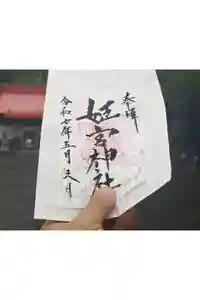 奉拝
姫宮神社
令和七年五月六日